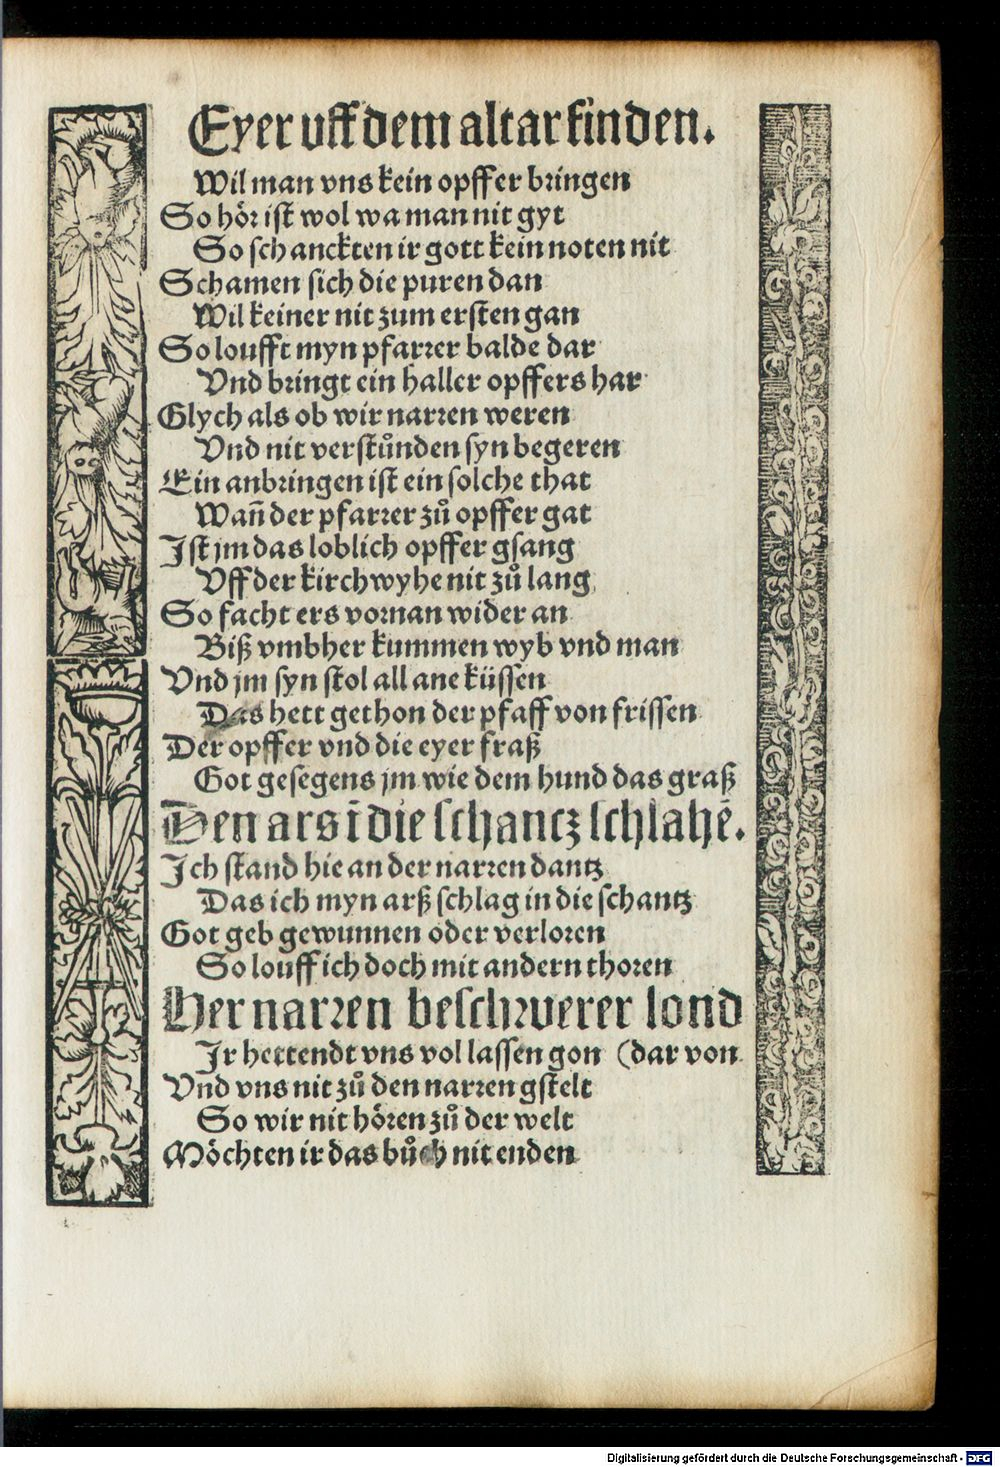 Eyer uff dem altar finden.
Wil man vns kein opffer bringen
So hör ist wol wa man nit gyt
So schanckten ir gott kein noten nit
Schamen sich die puren dan
Wil keiner nit zum ersten gan
So loufft myn pfarrer balde dar
Vnd bringt ein haller opffers har
Glych als ob wir narren weren
Vnd nit verstůnden syn begeren
Ein anbringen ist ein solche that
Wañ der pfarrer zů opffer gat
Ist jm das loblich opffer gsang
Vff der kirchwyhe nit zů lang
So facht ers vornan wider an
Biß vmbher kummen wyb vnd man
Vnd jm syn stol all ane küssen
Das hett gethon der pfaff von frissen
Der opffer vnd die eyer fraß
Got gesegens jm wie dem hund das graß
Den ars ī die schantz schlahē.
Ich stand hie an der narren dantz
Das ich myn arß schlag in die schantz
Got geb gewunnen oder verloren
So louff ich doch mit andern thoren
Her narren beschwerer lond
Jr hettendt vns vol lassen gon (dar von
Vnd vns nit zů den narren gstelt
So wir nit hören zů der welt
Möchten ir das bůch nit enden
Digitalisierung gefördert durch die Deutsche Forschungsgemeinschaft - DFG